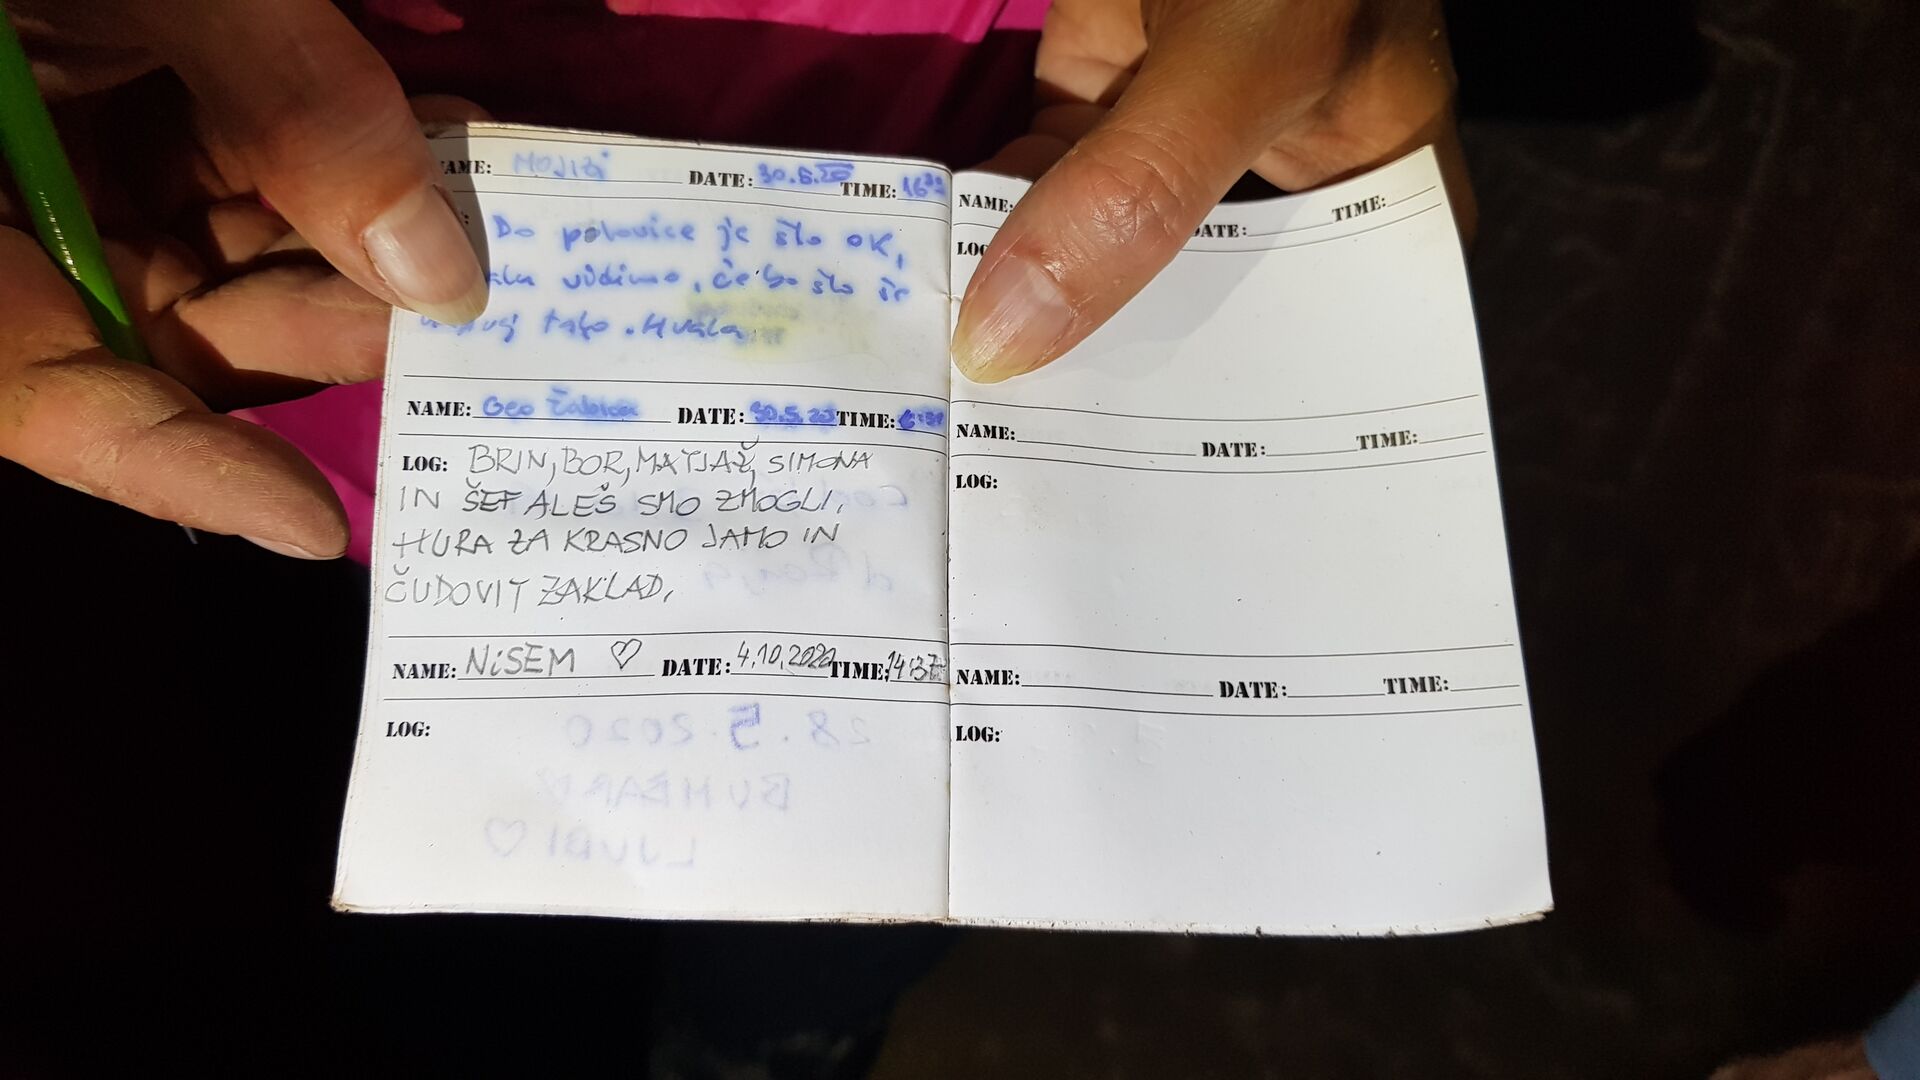 NAME: Mojizi DATE: 30.5.20 TIME: 16
Do polovice je šlo OK,
vidimo, če bo šlo še
tako. Hvala
NAME: Geo Žabica DATE: 30.5.20 TIME:
LOG: BRIN, BOR, MATJAŽ, SIMONA
IN ŠEF ALEŠ SMO ZMOGLI,
HURA ZA KRASNO JAMO IN
ČUDOVIT ZAKLAD.
NAME: NiSEM ♡ DATE: 4.10.2020 TIME: 14:37
LOG:
28.5.2020
LJUBI ♡
NAME: DATE: TIME:
LOG:
NAME: DATE: TIME:
LOG:
NAME: DATE: TIME:
LOG: